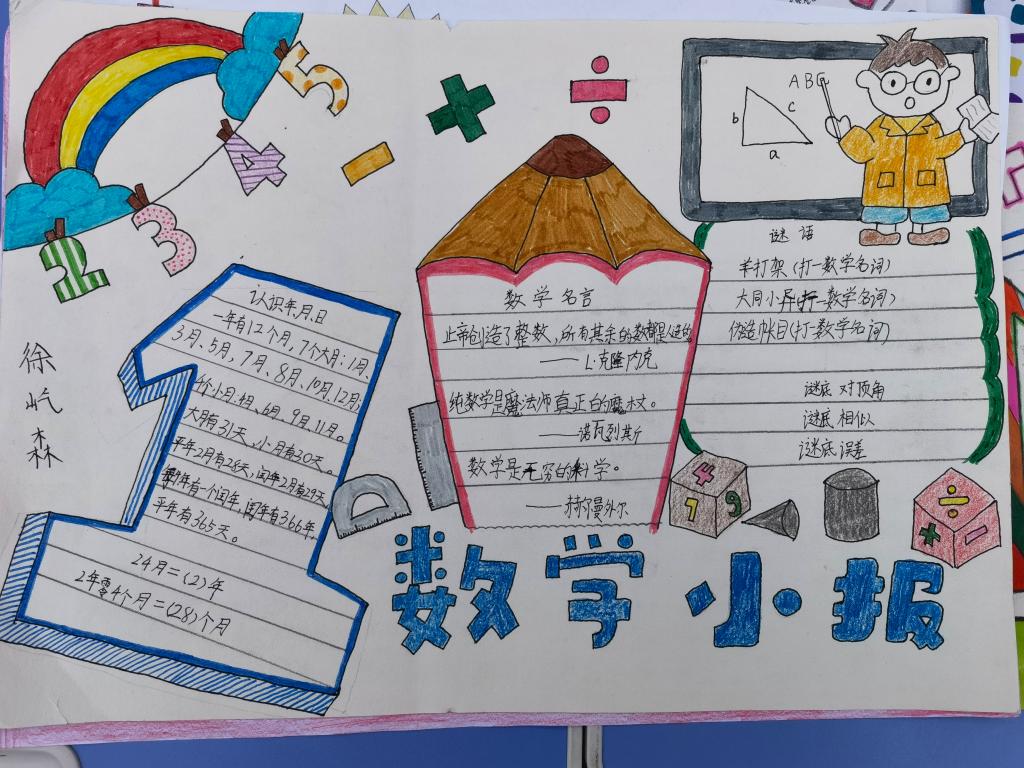 5
4
3
2
徐屹森
认识年、月、日
一年有12个月,7个大月:1月
3月、5月、7月、8月、10月、12月;
4个小月:4月、6月、9月、11月。
大月有31天,小月有30天。
平年2月有28天,闰年2月有29天
年有一个闰年,闰年有366年,
平年有365天。
24月=(2)年
2年零4个月=(28)个月
数学名言
上帝创造了整数,所有其余的数都是人造的
——L·克隆内克
纯数学是魔法师真正白的魔杖。
——诺瓦列斯
数学是无穷的科学。
——赫尔曼外尔
A B C
b
c
a
谜语
羊打架(打一数学名词)
大同小异(打一数学名词)
伪造帐目(打一数学名词)
谜底 对顶角
谜底 相似
谜底 误差
4
7
9
数学小报